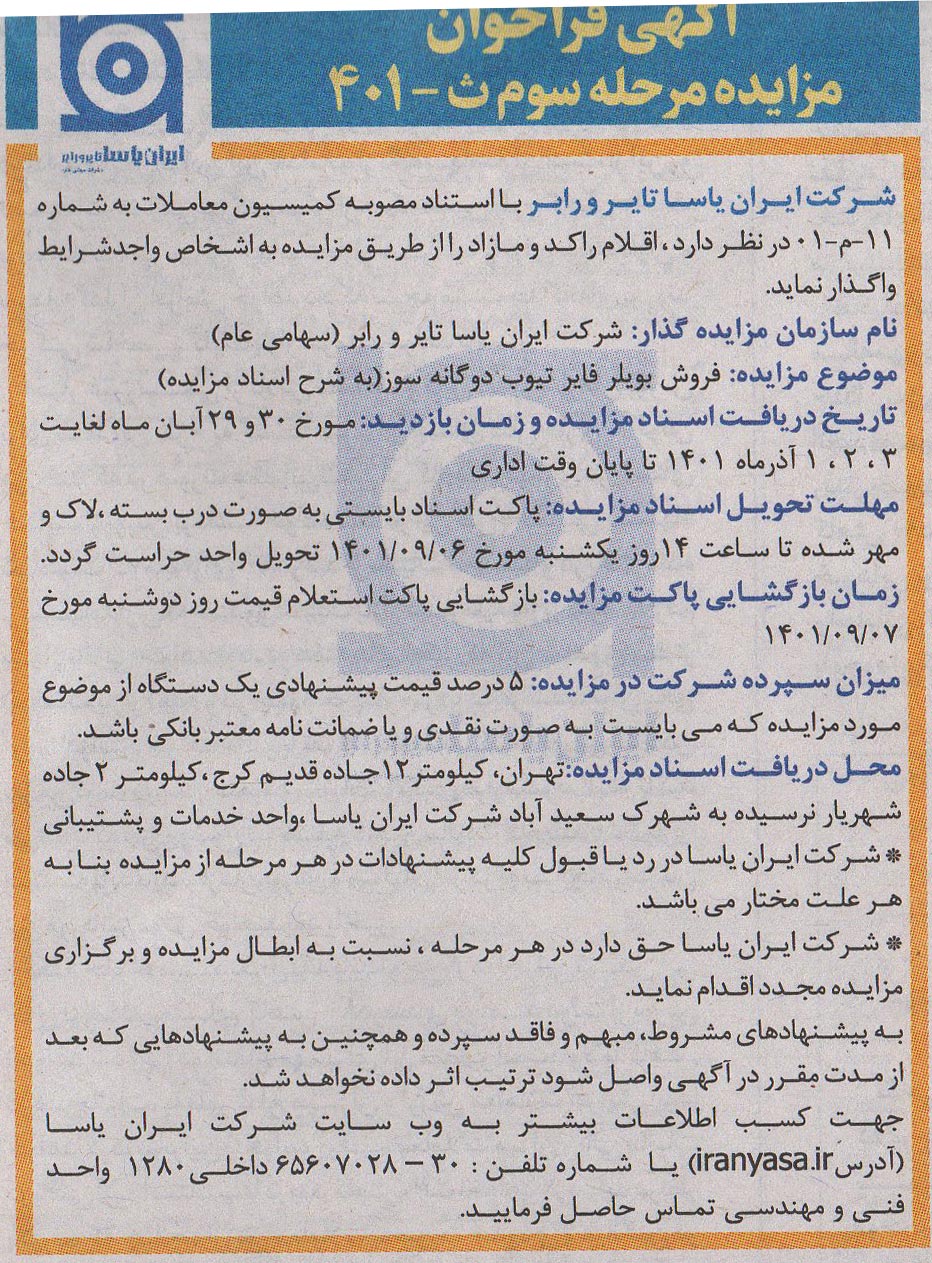 آگهی فراخوان
مزایده مرحله سوم ث - ۴۰۱
ایران یاسا تایر و رابر
شرکت ایران یاسا تایر و رابر با استناد مصوبه کمیسیون معاملات به شماره
۱۱-م-۰۱ در نظر دارد ، اقلام راکد و مازاد را از طریق مزایده به اشخاص واجد شرایط
واگذار نماید.
نام سازمان مزایده گذار: شرکت ایران یاسا تایر و رابر (سهامی عام)
موضوع مزایده: فروش بویلر فایر تیوب دوگانه سوز(به شرح اسناد مزایده)
تاریخ دریافت اسناد مزایده و زمان بازدید: مورخ ۳۰ و ۲۹ آبان ماه لغایت
۳ ، ۲ ، ۱ آذرماه ۱۴۰۱ تا پایان وقت اداری
مهلت تحویل اسناد مزایده: پاکت اسناد بایستی به صورت درب بسته ،لاک و
مهر شده تا ساعت ۱۴روز یکشنبه مورخ ۱۴۰۱/۰۹/۰۶ تحویل واحد حراست گردد.
زمان بازگشایی پاکت مزایده: بازگشایی پاکت استعلام قیمت روز دوشنبه مورخ
۱۴۰۱/۰۹/۰۷
میزان سپرده شرکت در مزایده: ۵ درصد قیمت پیشنهادی یک دستگاه از موضوع
مورد مزایده که می بایست به صورت نقدی و یا ضمانت نامه معتبر بانکی باشد.
محل دریافت اسناد مزایده:تهران، کیلومتر۱۲جاده قدیم کرج ،کیلومتر ۲ جاده
شهریار نرسیده به شهرک سعید آباد شرکت ایران یاسا ،واحد خدمات و پشتیبانی
* شرکت ایران یاسا در رد یا قبول کلیه پیشنهادات در هر مرحله از مزایده بنا به
هر علت مختار می باشد.
* شرکت ایران یاسا حق دارد در هر مرحله ، نسبت به ابطال مزایده و برگزاری
مزایده مجدد اقدام نماید.
به پیشنهادهای مشروط، مبهم و فاقد سپرده و همچنین به پیشنهادهایی که بعد
از مدت مقرر در آگهی واصل شود ترتیب اثر داده نخواهد شد.
جهت کسب اطلاعات بیشتر به وب سایت شرکت ایران یاسا
(آدرس iranyasa.ir) یا شماره تلفن : ۳۰ – ۶۵۶۰۷۰۲۸ داخلی ۱۲۸۰ واحد
فنی و مهندسی تماس حاصل فرمایید.